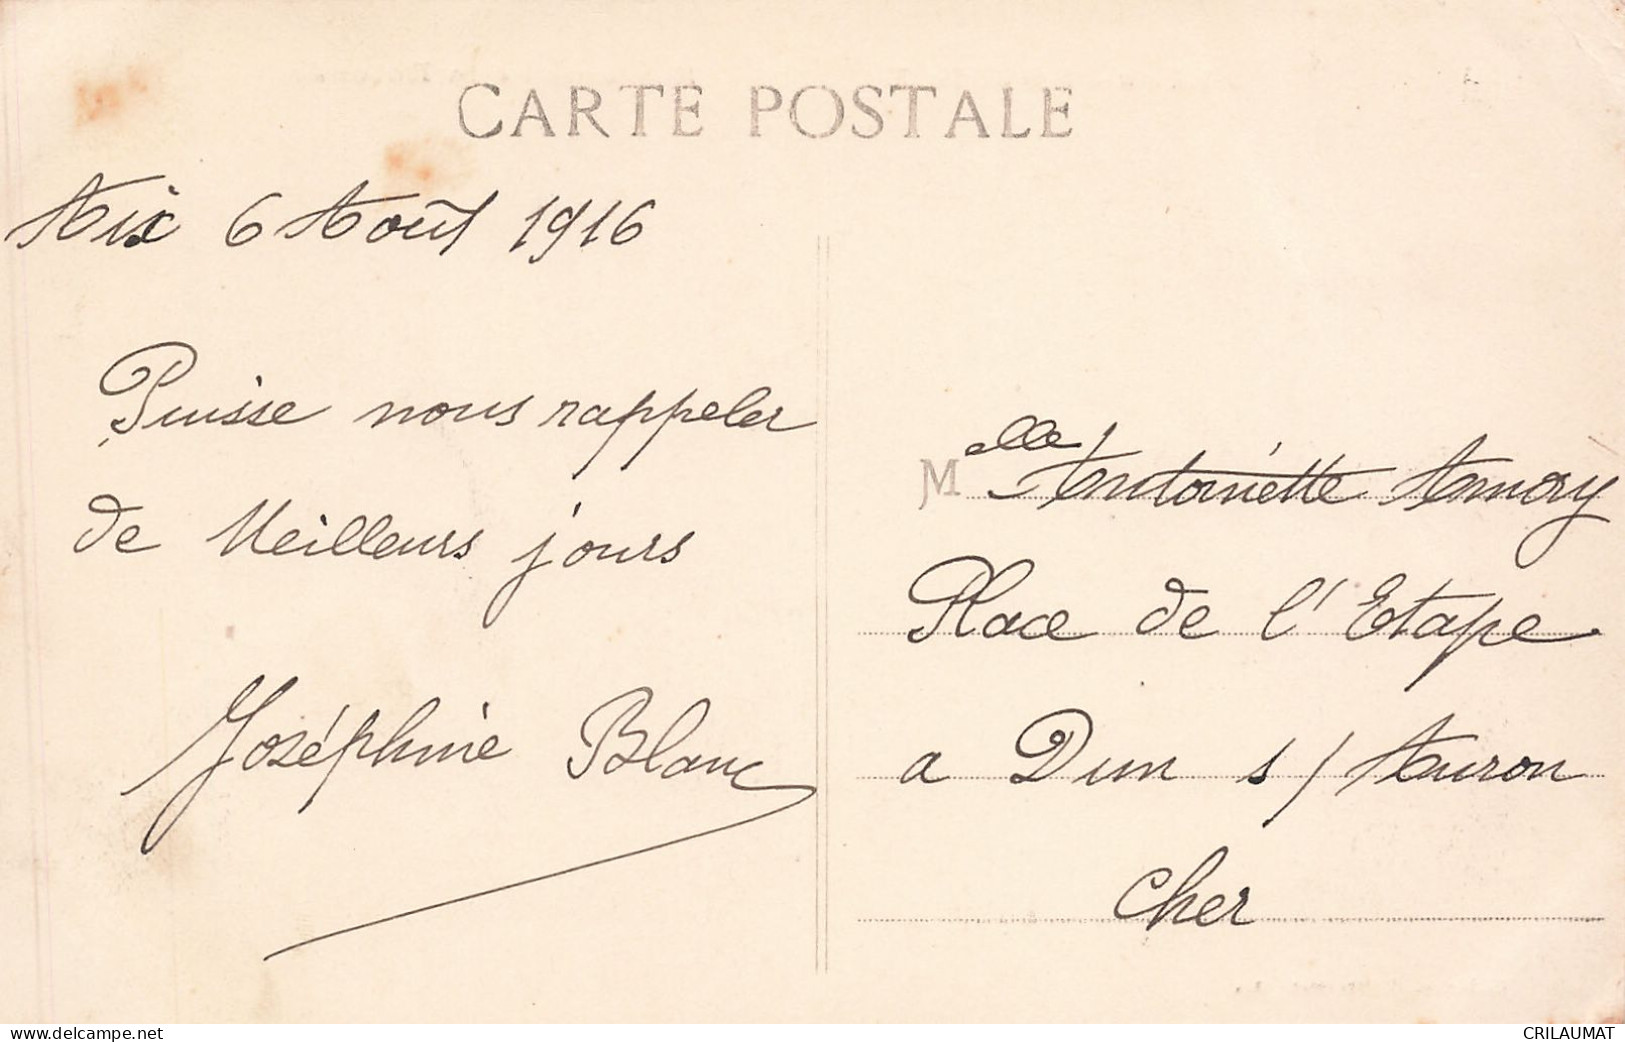 CARTE POSTALE
Aix 6 Août 1916
Puisse nous rappeler
de Meilleurs jours
Joséphine Blanc
Melle Antoinette Amory
Place de l'Etape
a Dun s/ Auron
Cher
www.delcampe.net
CRILAUMAT